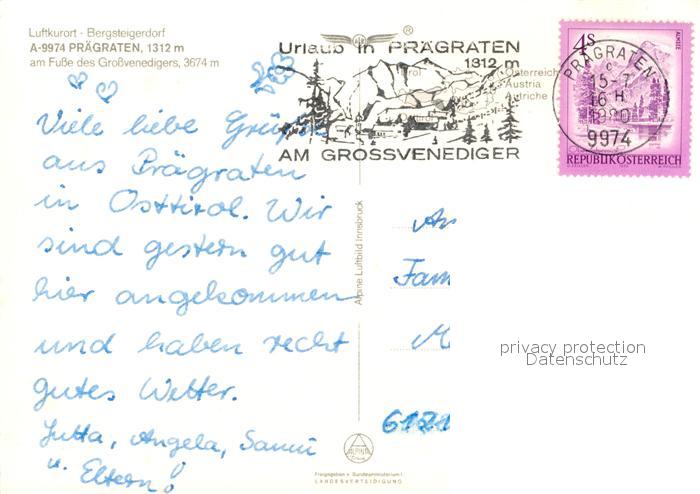 Luftkurort - Bergsteigerdorf
A-9974 PRÄGRATEN, 1312 m
am Fuße des Großvenedigers, 3674 m
Urlaub in PRÄGRATEN
1312 m
AM GROSSVENEDIGER
Österreich
Austria
Autriche
®
4S
ALMSEE
REPUBLIK ÖSTERREICH
PRÄGRATEN
c
15.-7.
16 H
1980
9974
Viele liebe Grüße
aus Prägraten
in Osttirol. Wir
sind gestern gut
hier angekommen
und haben recht
gutes Wetter.
Jutta, Angela, Sanni
u. Eltern!
Alpine Luftbild Innsbruck
An
Fam
M
6121
ALPINE
Freigegeben v. Bundesministerium f.
LANDESVERTEIDIGUNG
privacy protection
Datenschutz